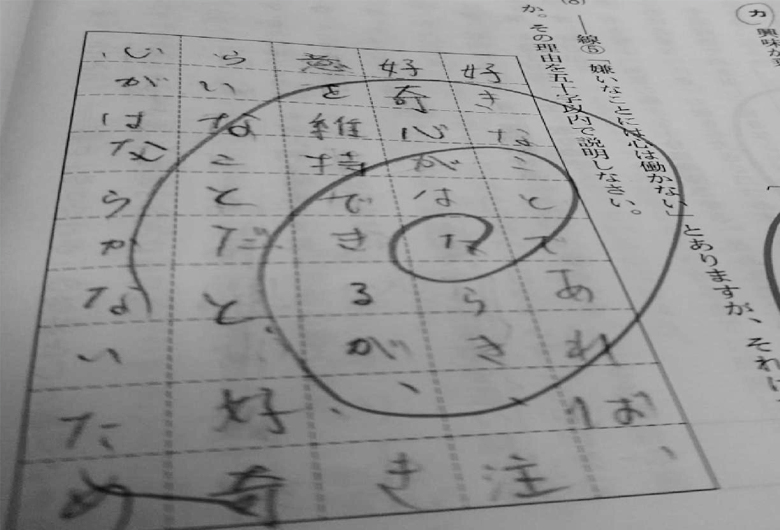 カ
興味が
――線⑤「嫌いなことには心は働かない」とありますが、それは
か。その理由を五十字以内で説明しなさい。
好きなことであれば、
好奇心がはたらき、注
意を維持できるが、き
らいなことだと、好奇
心がはたらかないため